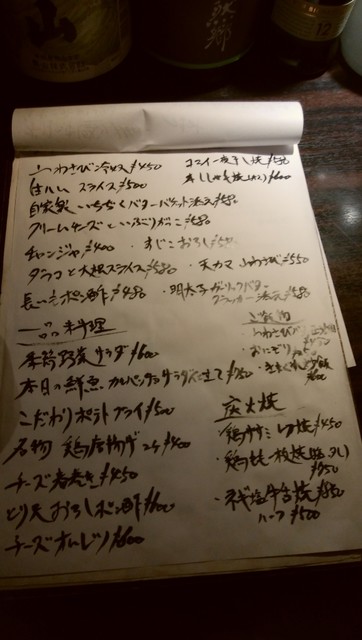 山わさび冷奴 ¥450
生ハム スライス ¥500
自家製 いちじくバター バケット添え ¥580
クリームチーズといぶりがっこ ¥580
チャンジャ ¥400 ・すじこおろし
タラコと大根スライス ¥580 ・天カマ 山わさび ¥550
長いもポン酢 ¥480 ・明太子ガーリックバター
クラッカー添え ¥580
コマイ一夜干し焼
¥600
一品料理
季節野菜サラダ ¥600
本日の鮮魚 カルパッチョサラダ仕立て
こだわりポテトフライ ¥500
名物 鶏唐揚げ 2ケ ¥400
チーズ春巻き ¥450
とり天おろしポン酢 ¥600
チーズオムレツ ¥600
山わさび
・おにぎり
炭火焼
・鶏ササミ ¥450
・鶏もも一枚焼 (塩、タレ)
¥950
・ネギ塩牛舌焼 ¥950
ハーフ ¥500
山
12